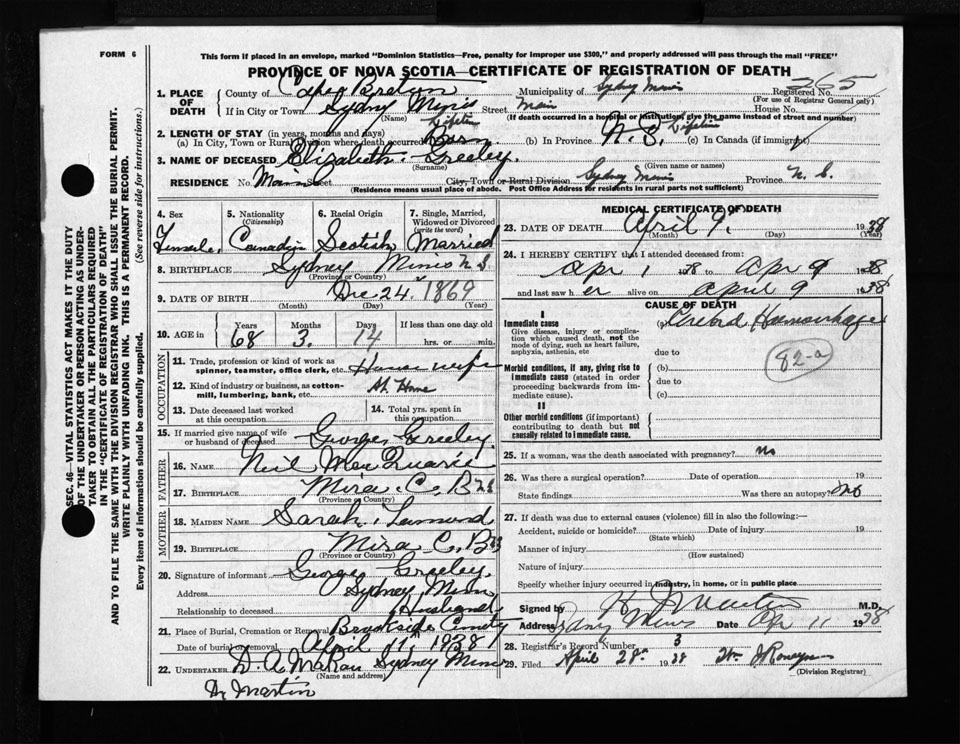 FORM 6
This form if placed in an envelope, marked "Dominion Statistics—Free, penalty for improper use $300," and properly addressed will pass through the mail "FREE"
PROVINCE OF NOVA SCOTIA—CERTIFICATE OF REGISTRATION OF DEATH
1. PLACE OF DEATH County of Cape Breton Municipality of Sydney Mines Registered No. 365
(For use of Registrar General only)
If in City or Town Sydney Mines Street Main House No.
(Name) (If death occurred in a hospital or institution, give the name instead of street and number)
2. LENGTH OF STAY (in years, months and days) Lifetime
(a) In City, Town or Rural Division where death occurred (b) In Province N. S. Lifetime (c) In Canada (if immigrant)
3. NAME OF DECEASED Elizabeth Greeley.
(Surname) (Given name or names)
RESIDENCE No. Main Street City, Town or Rural Division Sydney Mines Province N. S.
(Residence means usual place of abode. Post Office Address for residents in rural parts not sufficient)
SEC. 46—VITAL STATISTICS ACT MAKES IT THE DUTY
OF THE UNDERTAKER OR PERSON ACTING AS UNDER-
TAKER TO OBTAIN ALL THE PARTICULARS REQUIRED
IN THE "CERTIFICATE OF REGISTRATION OF DEATH"
AND TO FILE THE SAME WITH THE DIVISION REGISTRAR WHO SHALL ISSUE THE BURIAL PERMIT.
WRITE PLAINLY WITH UNFADING INK. THIS IS A PERMANENT RECORD.
Every item of information should be carefully supplied. (See reverse side for instructions.)
4. Sex 5. Nationality (Citizenship) 6. Racial Origin 7. Single, Married, Widowed or Divorced (write the word)
Female. Canadian Scotish Married
8. BIRTHPLACE Sydney Mines N S
(Province or Country)
9. DATE OF BIRTH Dec. 24. 1869
(Month) (Day) (Year)
10. AGE in Years 68 Months 3. Days 14 If less than one day old hrs. or min.
OCCUPATION
11. Trade, profession or kind of work as spinner, teamster, office clerk, etc. House wife
12. Kind of industry or business, as cotton-mill, lumbering, bank, etc. At Home
13. Date deceased last worked at this occupation 14. Total yrs. spent in this occupation
15. If married give name of wife or husband of deceased George Greeley.
FATHER
16. NAME Neil
17. BIRTHPLACE Mira. C. B N S
(Province or Country)
MOTHER
18. MAIDEN NAME Sarah
19. BIRTHPLACE Mira C. B N S
(Province or Country)
20. Signature of informant George Greeley.
Address Sydney Mines
Relationship to deceased Husband
21. Place of Burial, Cremation or Removal Brookside Cemetry
Date of burial or removal April 11, 1938
22. UNDERTAKER D. A. Sydney Mines
(Name and address)
Dr Martin
MEDICAL CERTIFICATE OF DEATH
23. DATE OF DEATH April 9, 1938
(Month) (Day) (Year)
24. I HEREBY CERTIFY that I attended deceased from:
Apr 1 1938 to Apr 9 1938
and last saw her alive on April 9 1938
CAUSE OF DEATH
I
Immediate cause (a) Hæmorrhage
Give disease, injury or complication which caused death, not the mode of dying, such as heart failure, asphyxia, asthenia, etc
due to
82-a
Morbid conditions, if any, giving rise to immediate cause (stated in order proceeding backwards from immediate cause). (b)
due to
(c)
II
Other morbid conditions (if important) contributing to death but not causally related to immediate cause.
25. If a woman, was the death associated with pregnancy? no
26. Was there a surgical operation? Date of operation 19
State findings Was there an autopsy? no
27. If death was due to external causes (violence) fill in also the following:—
Accident, suicide or homicide? Date of injury 19
(State which)
Manner of injury
(How sustained)
Nature of injury
Specify whether injury occurred in industry, in home, or in public place
Signed by M.D.
Address Sydney Mines Date Apr 11 1938
28. Registrar's Record Number 3
29. Filed April 28th 1938
(Division Registrar)